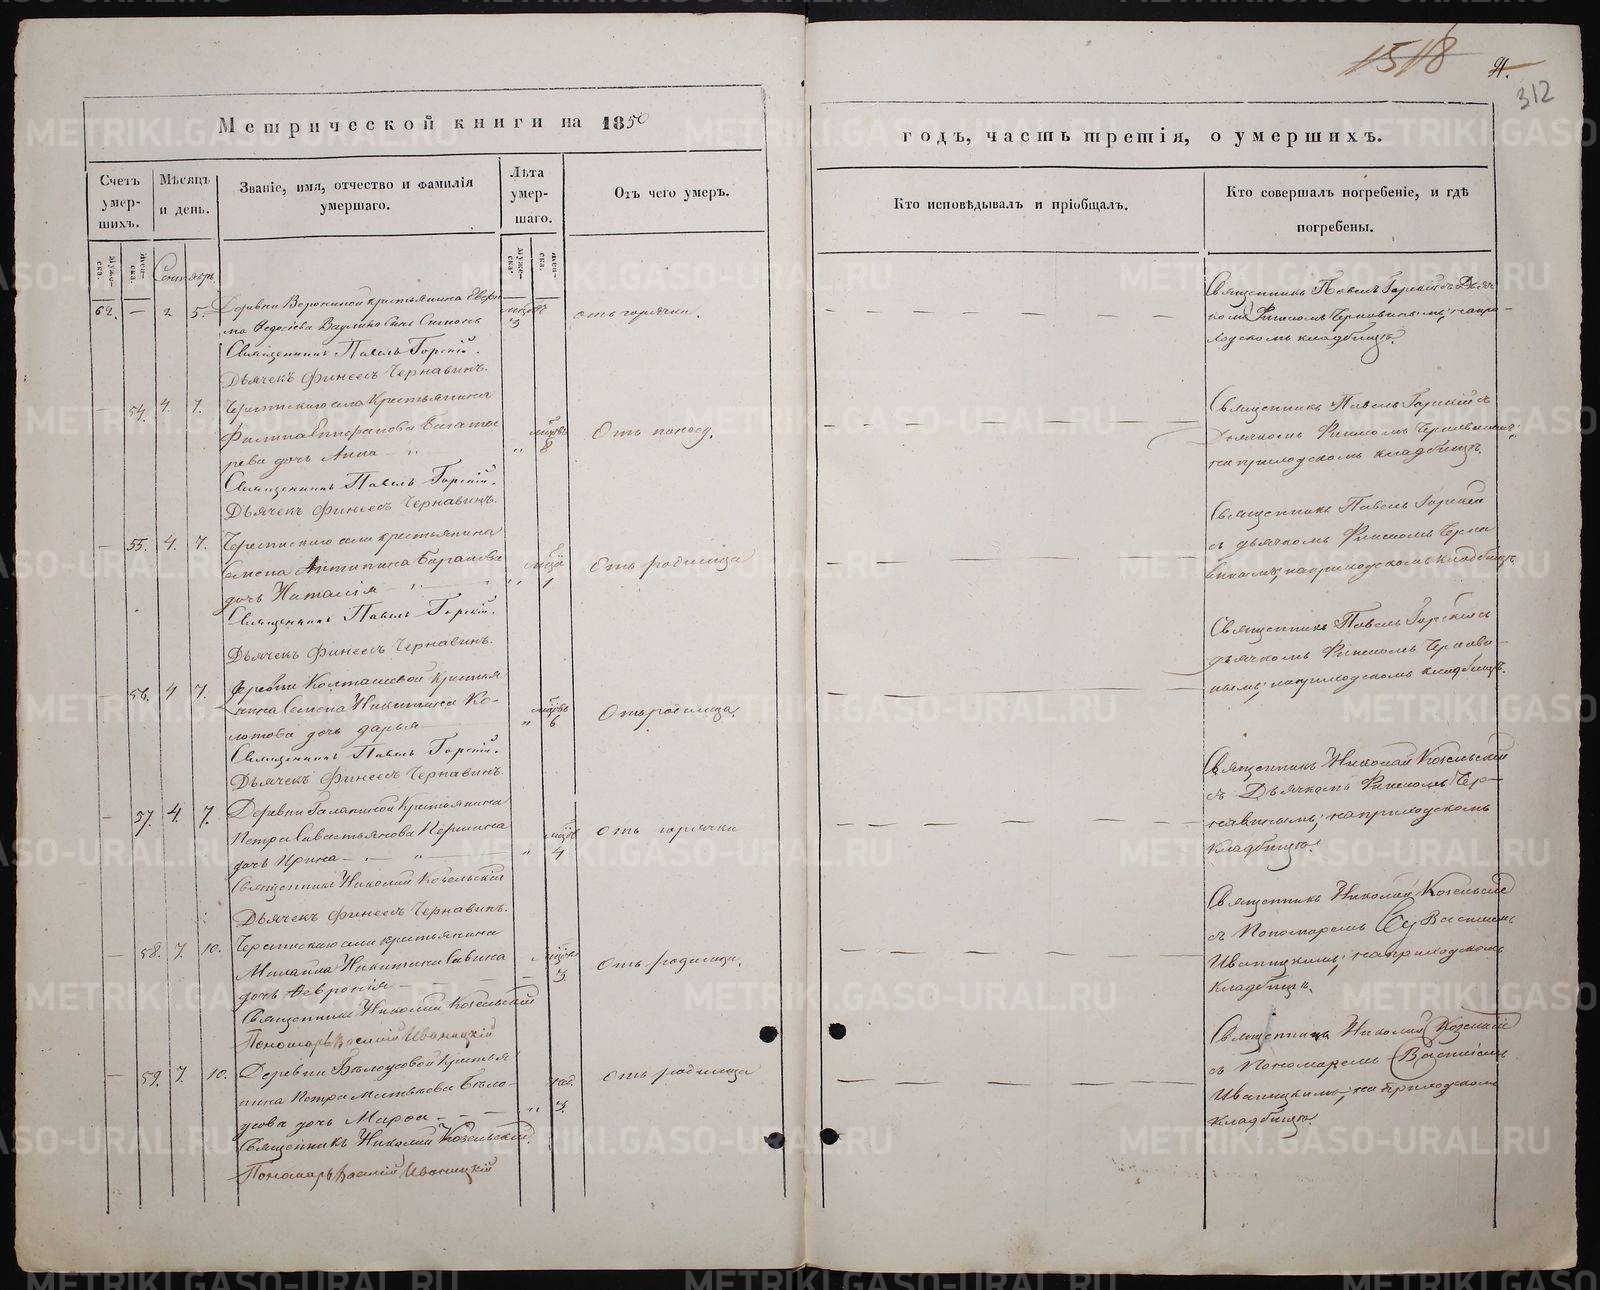 1518
91.
312
Метрической книги на 1850
годъ, часть третія, о умершихъ.
Счетъ умер-шихъ.
Мѣсяцъ и день.
Званіе, имя, отчество и фамилія умершаго.
Лѣта умер-шаго.
Отъ чего умеръ.
Кто исповѣдывалъ и пріобщалъ.
Кто совершалъ погребеніе, и гдѣ погребены.
Муже-ска.
Жен-ска.
Сентябрь
Муже-ска.
Жен-ска.
62. — 2 5. Деревни Ворониной крестьянина
Ваулина сынъ Симонъ
3
отъ горячки.
Священникъ Павелъ Горскій.
Дьячекъ Финеесъ Чернавинъ.
Священникъ Павелъ Горскій съ Дьяч-
комъ Финеесомъ Чернавинымъ; на при-
ходскомъ кладбищѣ.
— 54. 4. 7. Черемисскаго села Крестьянина
Филиппа Епифанова Богаты-
рева дочь Анна — „
„ 8
Отъ поносу.
Священникъ Павелъ Горскій.
Дьячекъ Финеесъ Чернавинъ.
Священникъ Павелъ Горскій съ
Дьячкомъ Финеесомъ Чернавинымъ;
на приходскомъ кладбищѣ.
— 55. 4. 7. Черемисскаго села крестьянина
Семена Антипина Баранова
дочь Наталія — „
„ 1
Отъ родимца
Священникъ Павелъ Горскій.
Дьячекъ Финеесъ Чернавинъ.
Священникъ Павелъ Горскій
съ дьячкомъ Финеесомъ Черна
винымъ; на приходскомъ кладбищѣ.
— 56. 4 7. Деревни Колташевой крестья
нина Семена Никитина Ко-
лотова дочь Дарья
„ 6
Отъ родимца.
Священникъ Павелъ Горскій.
Дьячекъ Финеесъ Чернавинъ.
Священникъ Павелъ Горскій съ
дьячкомъ Финеесомъ Чернави-
нымъ; на приходскомъ кладбищѣ.
— 57. 4. 7. Деревни Галаниной Крестьянина
Петра Савастьянова Першина
дочь Ирина — „ — „
„ 4
Отъ горячки
Священникъ Николай Козельскій
Дьячекъ Финеесъ Чернавинъ.
Священникъ Николай Козельскій
съ Дьячкомъ Финеесомъ Чер-
навинымъ; на приходскомъ
кладбищѣ.
— 58. 7. 10. Черемисскаго села крестьянина
Михайла Никитина Савина
дочь Февронія —
— 3
Отъ родимца.
Священникъ Николай Козельскій
Пономарь Василій Иваницкій
Священникъ Николай Козельскій
съ Пономаремъ Василіемъ
Иваницкимъ; на приходскомъ
кладбищѣ.
— 59. 7. 10. Деревни Бѣлоусовой Крестья
нина Петра Матвѣева Бѣло-
усова дочь Марѳа — — —
нед. „ 3.
Отъ родимца
Священникъ Николай Козельскій.
Пономарь Василій Иваницкій
Священникъ Николай Козельскій
съ Пономаремъ Василіемъ
Иваницкимъ; на приходскомъ
кладбищѣ.
METRIKI.GASO-URAL.RU